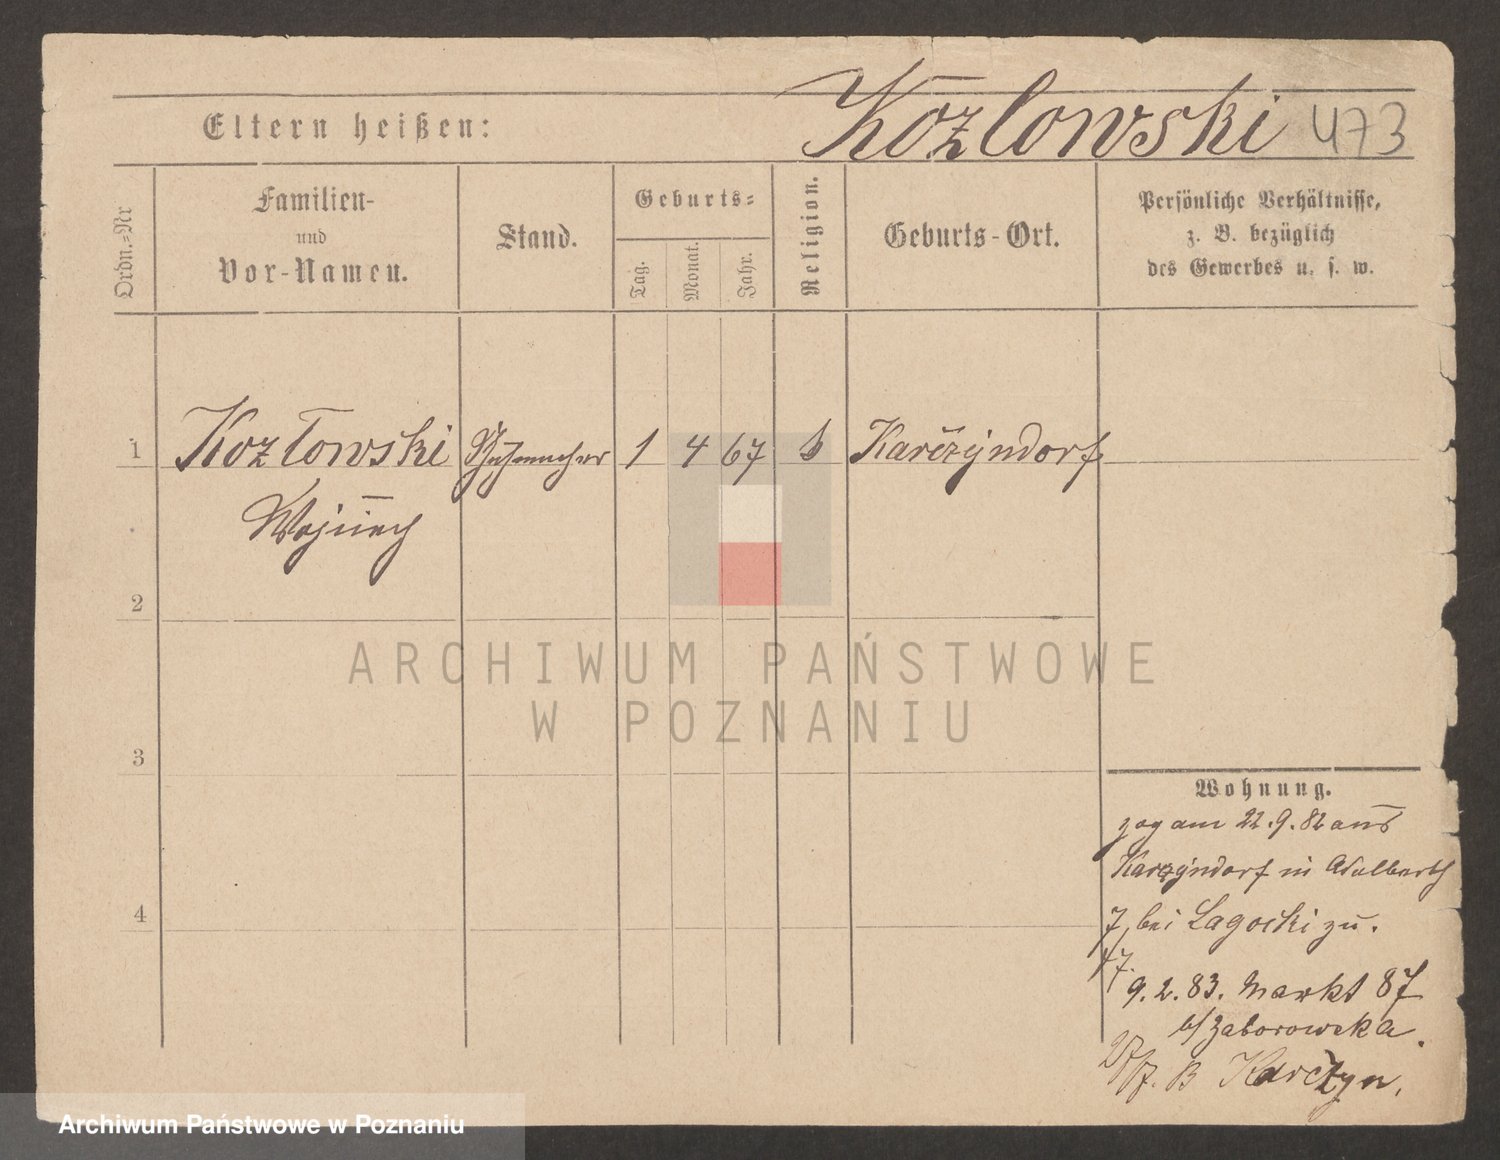 Kozlowski 473
Eltern heißen:
Ordn.=Nr
Familien-
und
Vor-Namen.
Stand.
Geburts=
Tag.
Monat.
Jahr.
Religion.
Geburts-Ort.
Persönliche Verhältnisse,
z. B. bezüglich
des Gewerbes u. s. w.
1 Kozłowski Schuhmacher 1 4 67 Karczyndorf
2
3
4
Wohnung.
zog am 22.9.82 aus
Karczyndorf in Adalberth
7, bei Lagocki zu.
9.2.83. Markt 87
b/ Zaborowska.
Karczyn.
ARCHIWUM PAŃSTWOWE
W POZNANIU
Archiwum Państwowe w Poznaniu